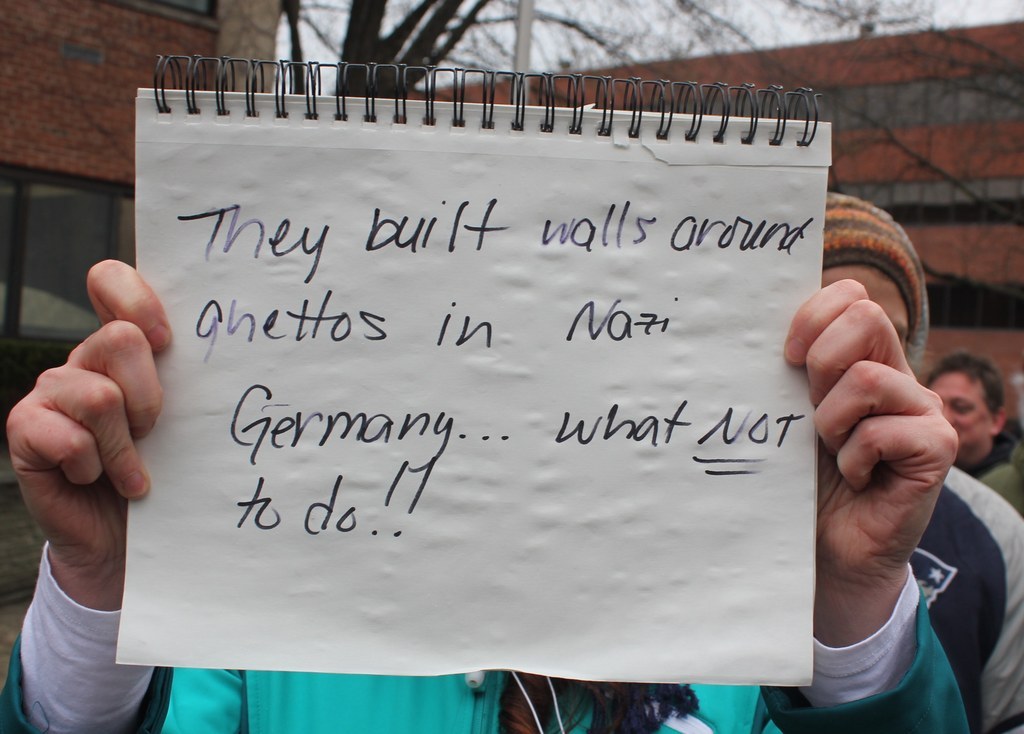 They built walls around
ghettos in Nazi
Germany... what NOT
to do!!